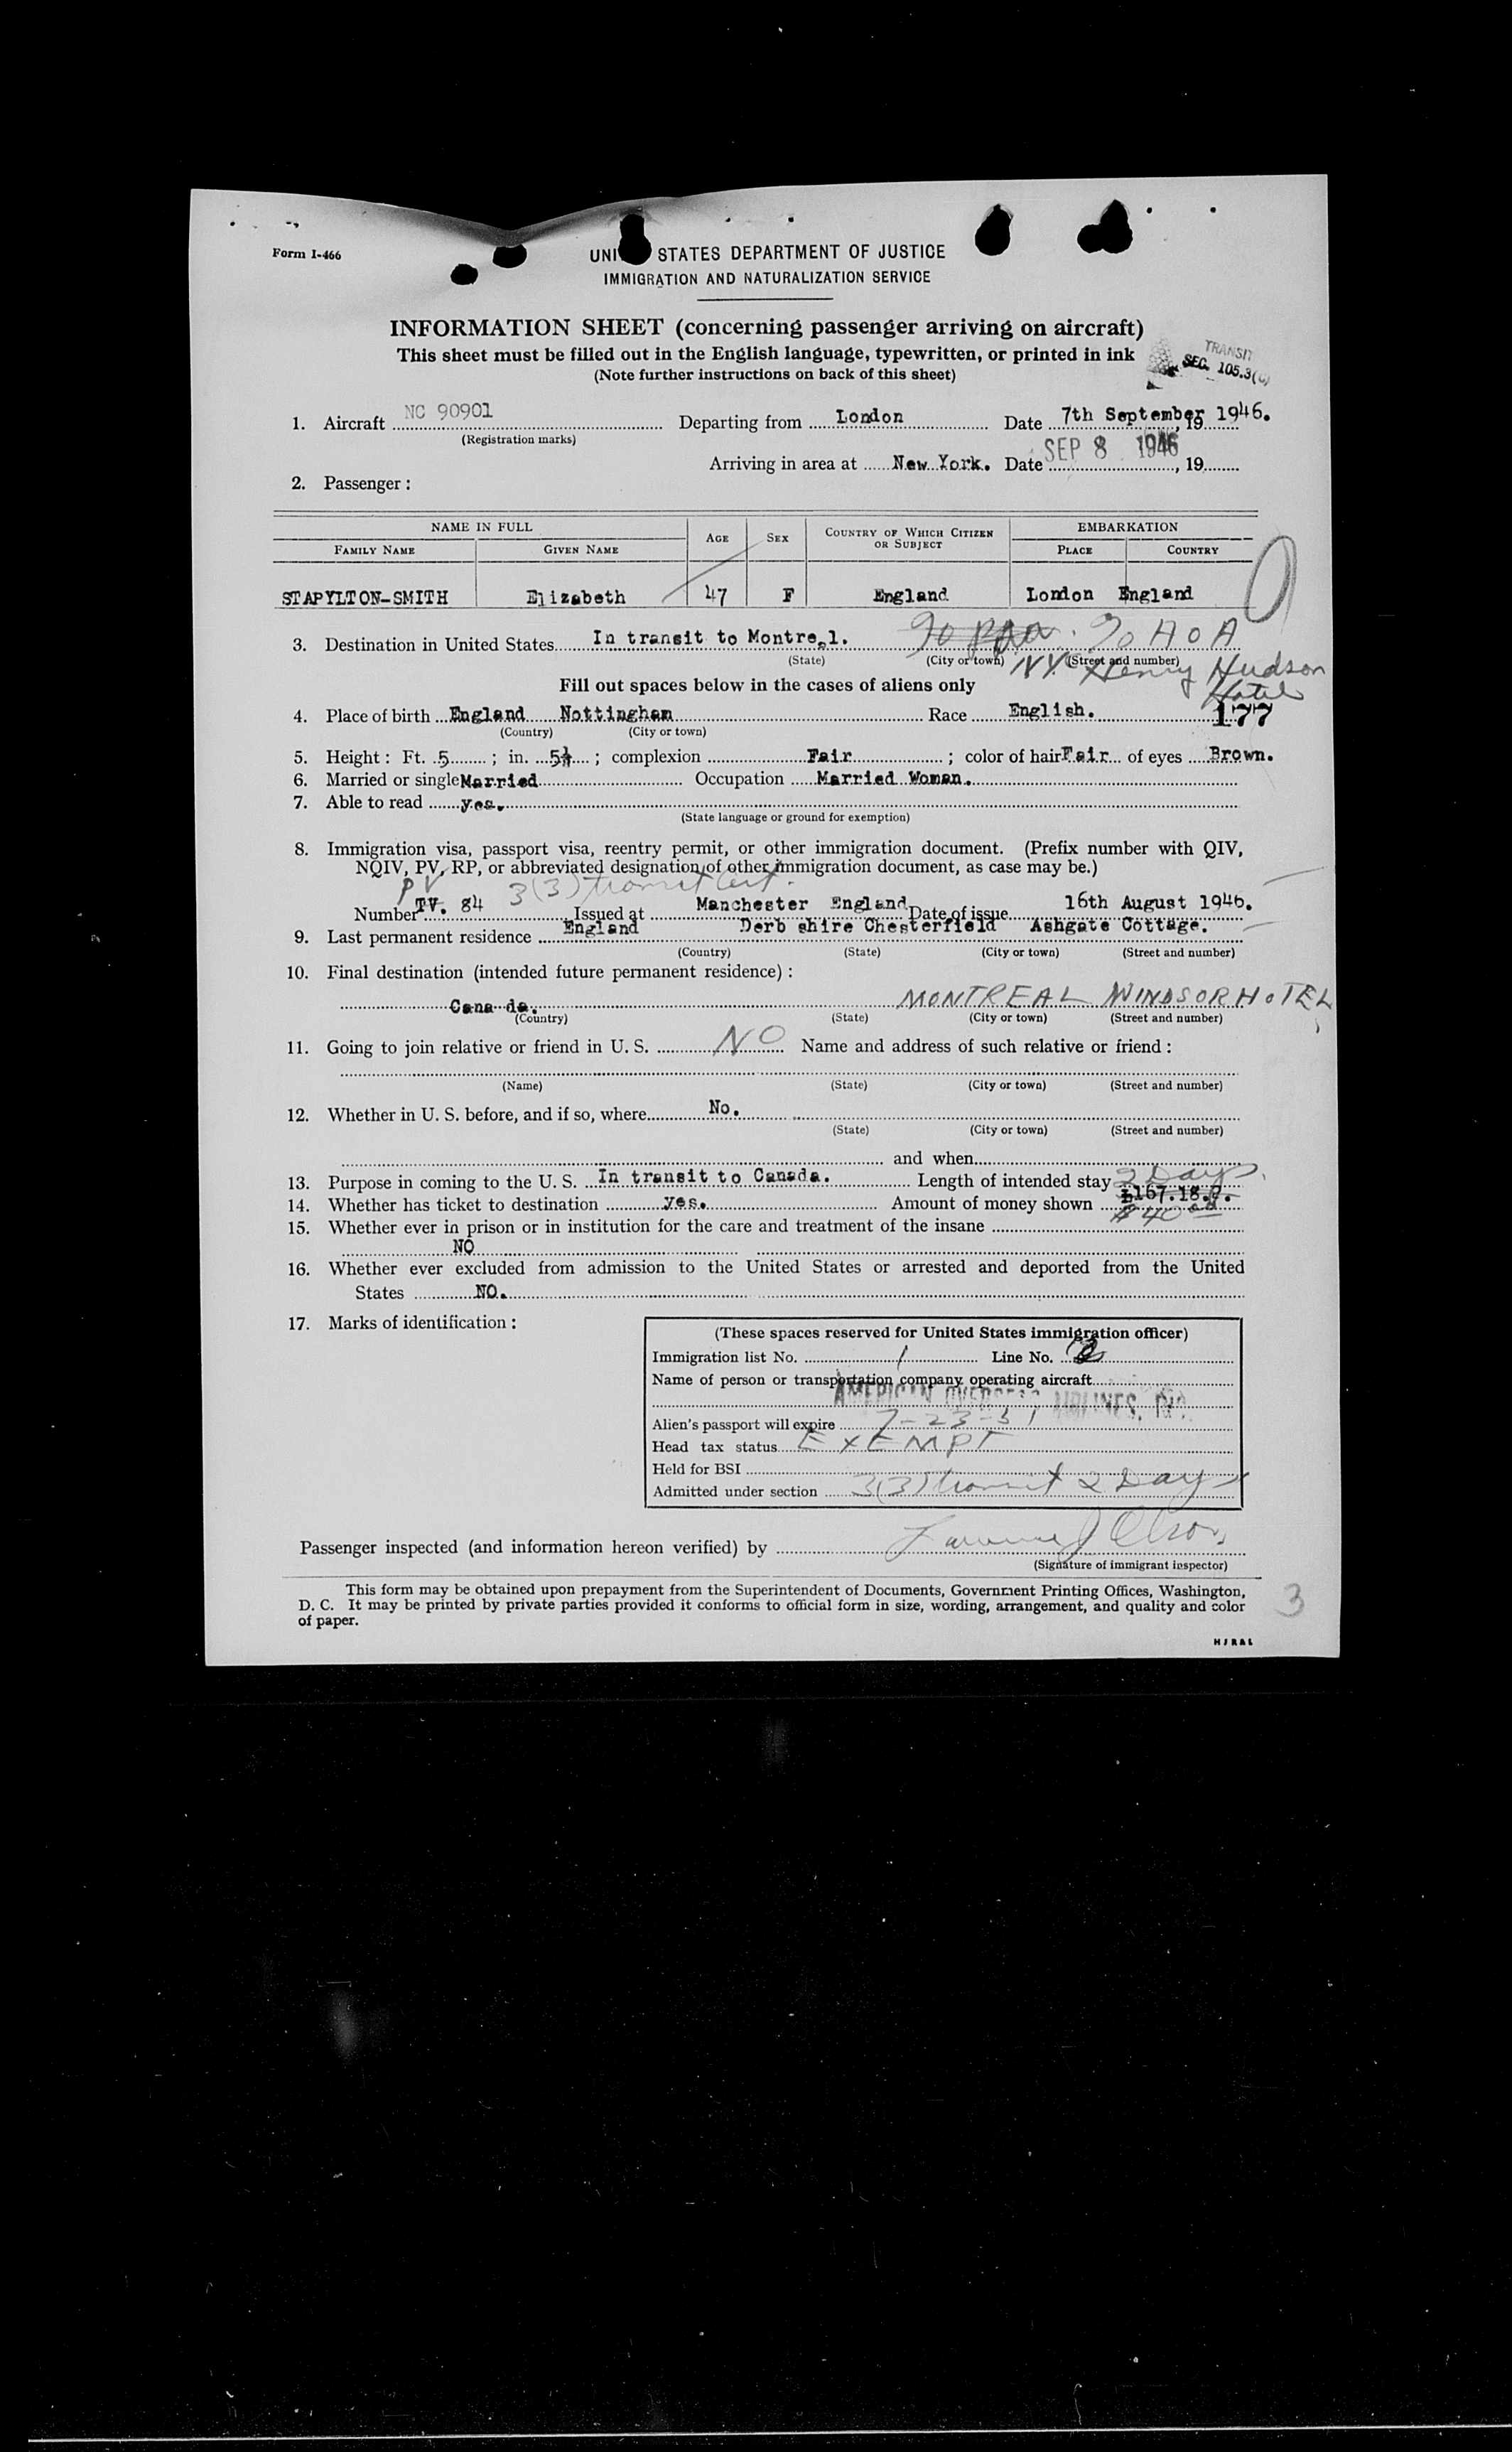 Form I-466
UNI STATES DEPARTMENT OF JUSTICE
IMMIGRATION AND NATURALIZATION SERVICE
INFORMATION SHEET (concerning passenger arriving on aircraft)
This sheet must be filled out in the English language, typewritten, or printed in ink
(Note further instructions on back of this sheet)
TRANSIT
SEC. 105.3(c)
1. Aircraft NC 90901 Departing from London Date 7th September, 19 1946.
(Registration marks)
Arriving in area at New York. Date SEP 8 1946, 19
2. Passenger:
NAME IN FULL AGE SEX COUNTRY OF WHICH CITIZEN OR SUBJECT EMBARKATION
FAMILY NAME GIVEN NAME PLACE COUNTRY
STAPYLTON-SMITH Elizabeth 47 F England London England
3. Destination in United States In transit to Montreal. % PAA. % A O A
(State) (City or town) (Street and number)
N.Y.C. Henry Hudson Hotel
Fill out spaces below in the cases of aliens only
4. Place of birth England Nottingham Race English. 177
(Country) (City or town)
5. Height: Ft. 5 ; in. 5½ ; complexion Fair ; color of hair Fair of eyes Brown.
6. Married or single Married Occupation Married Woman.
7. Able to read yes.
(State language or ground for exemption)
8. Immigration visa, passport visa, reentry permit, or other immigration document. (Prefix number with QIV,
NQIV, PV, RP, or abbreviated designation of other immigration document, as case may be.)
PV 3(3) transit Cert.
Number TV. 84 Issued at Manchester England Date of issue 16th August 1946.
9. Last permanent residence England Derb shire Chesterfield Ashgate Cottage.
(Country) (State) (City or town) (Street and number)
10. Final destination (intended future permanent residence):
Cana da. MONTREAL WINDSOR HOTEL
(Country) (State) (City or town) (Street and number)
11. Going to join relative or friend in U. S. NO Name and address of such relative or friend:
(Name) (State) (City or town) (Street and number)
12. Whether in U. S. before, and if so, where No.
(State) (City or town) (Street and number)
and when
13. Purpose in coming to the U. S. In transit to Canada. Length of intended stay 2 Days.
14. Whether has ticket to destination yes. Amount of money shown £167.18. $40
15. Whether ever in prison or in institution for the care and treatment of the insane
NO
16. Whether ever excluded from admission to the United States or arrested and deported from the United
States NO.
17. Marks of identification:
(These spaces reserved for United States immigration officer)
Immigration list No. 1 Line No. 2
Name of person or transportation company operating aircraft
AMERICAN OVERSEAS AIRLINES, INC.
Alien's passport will expire 7-23-51
Head tax status EXEMPT
Held for BSI
Admitted under section 3(3) transit 2 Days
Passenger inspected (and information hereon verified) by
(Signature of immigrant inspector)
This form may be obtained upon prepayment from the Superintendent of Documents, Government Printing Offices, Washington,
D. C. It may be printed by private parties provided it conforms to official form in size, wording, arrangement, and quality and color
of paper.
3